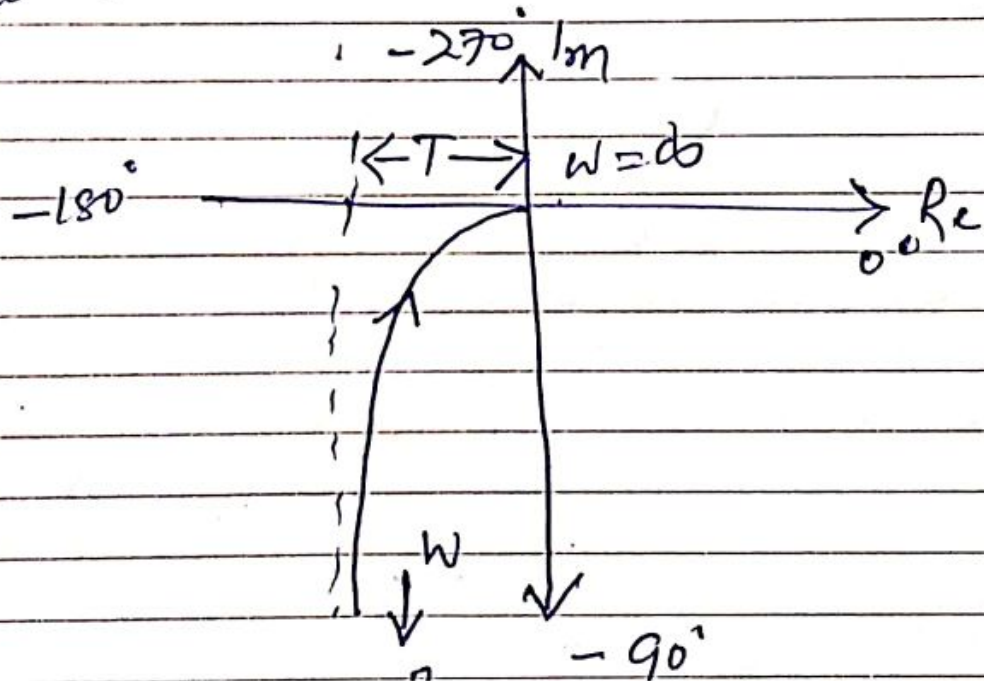 -270° Im
←T→ W = ∞
-180° Re
0°
W
↓
-90°